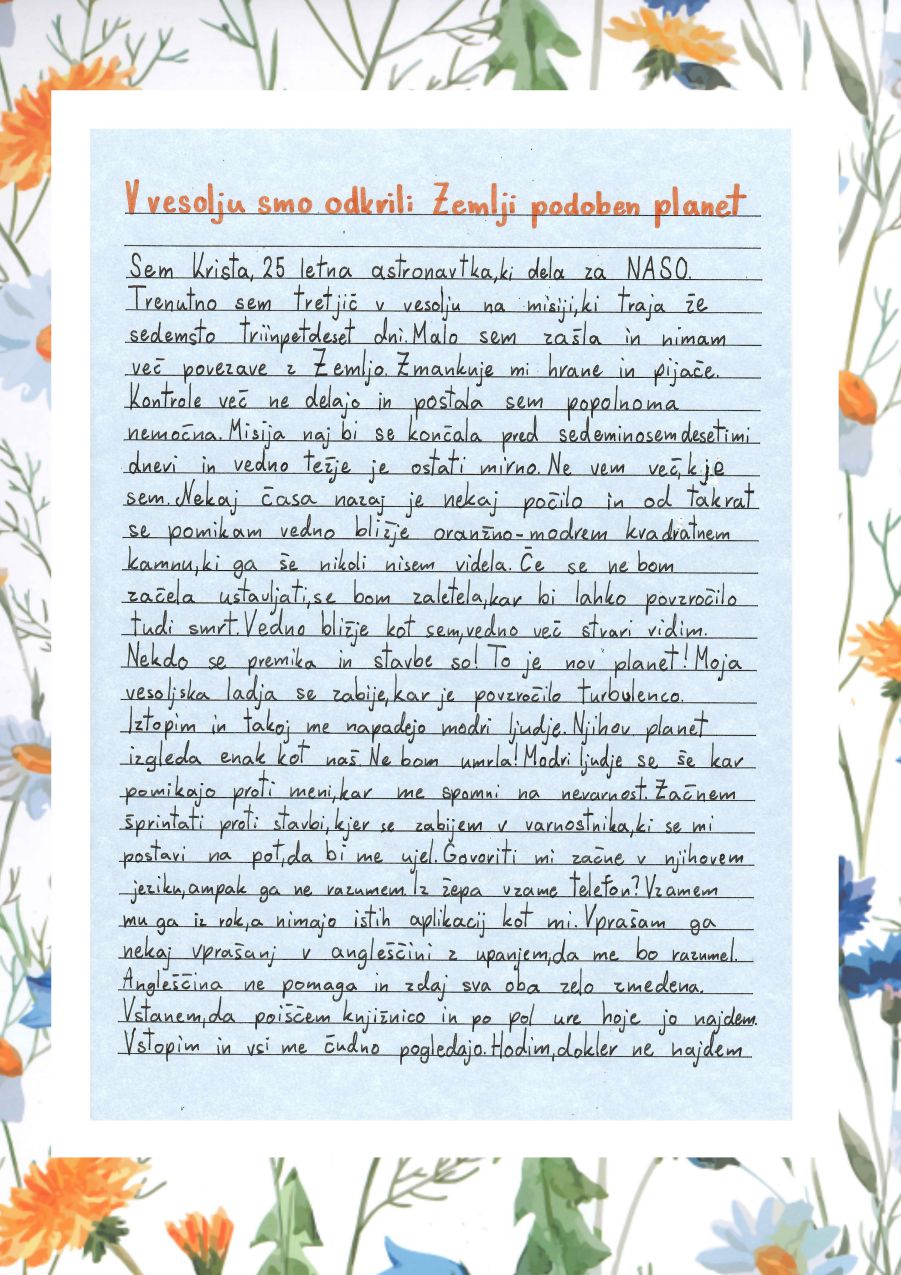 V vesolju smo odkrili Zemlji podoben planet
Sem Krista, 25 letna astronavtka, ki dela za NASO.
Trenutno sem tretjič v vesolju na misiji, ki traja že
sedemsto triinpetdeset dni. Malo sem zašla in nimam
več povezave z Zemljo. Zmankuje mi hrane in pijače.
Kontrole več ne delajo in postala sem popolnoma
nemočna. Misija naj bi se končala pred sedeminosemdesetimi
dnevi in vedno težje je ostati mirno. Ne vem več, kje
sem. Nekaj časa nazaj je nekaj počilo in od takrat
se pomikam vedno bližje oranžno-modrem kvadratnem
kamnu, ki ga še nikoli nisem videla. Če se ne bom
začela ustavljati, se bom zaletela, kar bi lahko povzročilo
tudi smrt. Vedno bližje kot sem, vedno več stvari vidim.
Nekdo se premika in stavbe so! To je nov planet! Moja
vesoljska ladja se zabije, kar je povzročilo turbulenco.
Iztopim in takoj me napadejo modri ljudje. Njihov planet
izgleda enak kot naš. Ne bom umrla! Modri ljudje se še kar
pomikajo proti meni, kar me spomni na nevarnost. Začnem
šprintati proti stavbi, kjer se zabijem v varnostnika, ki se mi
postavi na pot, da bi me ujel. Govoriti mi začne v njihovem
jeziku, ampak ga ne razumem. Iz žepa vzame telefon? Vzamem
mu ga iz rok, a nimajo istih aplikacij kot mi. Vprašam ga
nekaj vprašanj v angleščini z upanjem, da me bo razumel.
Angleščina ne pomaga in zdaj sva oba zelo zmedena.
Vstanem, da poiščem knjižnico in po pol ure hoje jo najdem.
Vstopim in vsi me čudno pogledajo. Hodim, dokler ne najdem